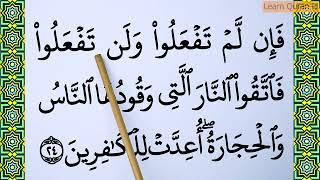 Learn Quran
فَإِن لَّمۡ تَفۡعَلُواْ وَلَن تَفۡعَلُواْ
فَٱتَّقُواْ ٱلنَّارَ ٱلَّتِي وَقُودُهَا ٱلنَّاسُ
وَٱلۡحِجَارَةُۖ أُعِدَّتۡ لِلۡكَٰفِرِينَ ٢٤